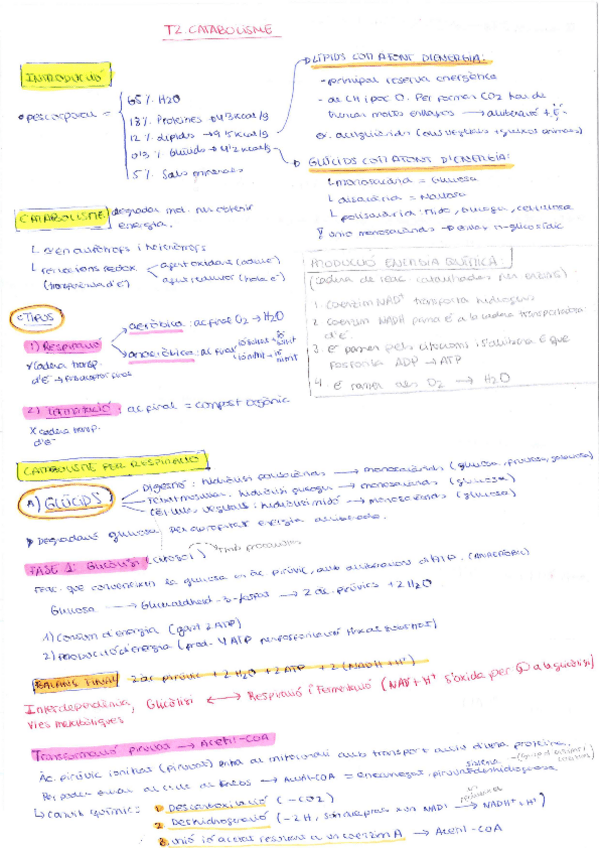 T2. CATABOLISME
INTRODUCCIÓ
• pes corporal =
65 % H2O
18 % Proteïnes → 4'3 kcal/g
12 % Lípids → 9'5 kcal/g
0'3 % Glúcids → 4'2 kcal/g
5 % Sals minerals
LÍPIDS COM A FONT D'ENERGIA:
- principal reserva energètica
- de CH i poc O. Per formar CO2 han de
trencar molts enllaços → alliberació + E
GLÚCIDS COM A FONT D'ENERGIA:
↳ monosacàrid = Glucosa
↳ disacàrid = Maltosa
↳ polisacàrid: Midó, Glucogen, cel·lulosa
CATABOLISME
degradar mol. per obtenir
energia.
↳ és en autòtrofs i heteròtrofs
↳ reaccions redox
(transferència d'e-)
agent oxidant
agent reductor
PRODUCCIÓ ENERGIA QUÍMICA:
(cadena de reac. catalitzades per enzims)
1 Coenzim NAD+ transporta hidrògens
2 Coenzim NADH primà e- a la cadena transportadora
d'e-.
3 e- passen pels citocroms i s'allibera E que
fosforila ADP → ATP
4 e- passen als O2 → H2O
TIPUS
1) Respiració
✓ cadena transp.
d'e-
aeròbica: ac. final O2 → H2O
anaeròbica: ac. final
2) Fermentació: ac final = compost orgànic
X cadena transp.
d'e-
CATABOLISME PER RESPIRACIÓ
A) GLÚCIDS
Digestió: hidròlisi polisacàrids → monosacàrids (glucosa, fructosa, galactosa)
Teixit muscular: hidròlisi glucogen → monosacàrids (glucosa)
Cèl·lules vegetals: hidròlisi midó → monosacàrids (glucosa)
▸ Degradació glucosa, per aprofitar energia
FASE 1: Glucòlisi (citosol) → Tmb procariotes
reac. que converteixen la glucosa en àc. pirúvic, amb alliberació d'ATP. (ANAERÒBIC)
Glucosa → Gliceraldehid-3-fosfat → 2 àc. pirúvics + 2 H2O
1) Consum d'energia (gast 2 ATP)
2) Producció d'energia (prod. 4 ATP per fosforilació
BALANÇ FINAL 2 àc pirúvic + 2 H2O + 2 ATP + 2 (NADH + H+)
Interdependència, Glicòlisi ↔ Respiració i Fermentació (NAD+H+ s'oxida per a la glicòlisi)
Vies metabòliques
Transformació piruvat → Acetil-COA
Àc. pirúvic ionitzat (piruvat) entra al mitocondri amb transport actiu d'una proteïna.
Per poder entrar al cicle de Krebs → Acetil-COA = enzimàtic, piruvat deshidrogenasa
↳ canvis químics:
1 Descarboxilació (-CO2)
2 Deshidrogenació (-2H, són acceptats x un NAD+ → NADH + H+)
3 Unió àcid acètic resultant a un coenzim A → Acetil-COA